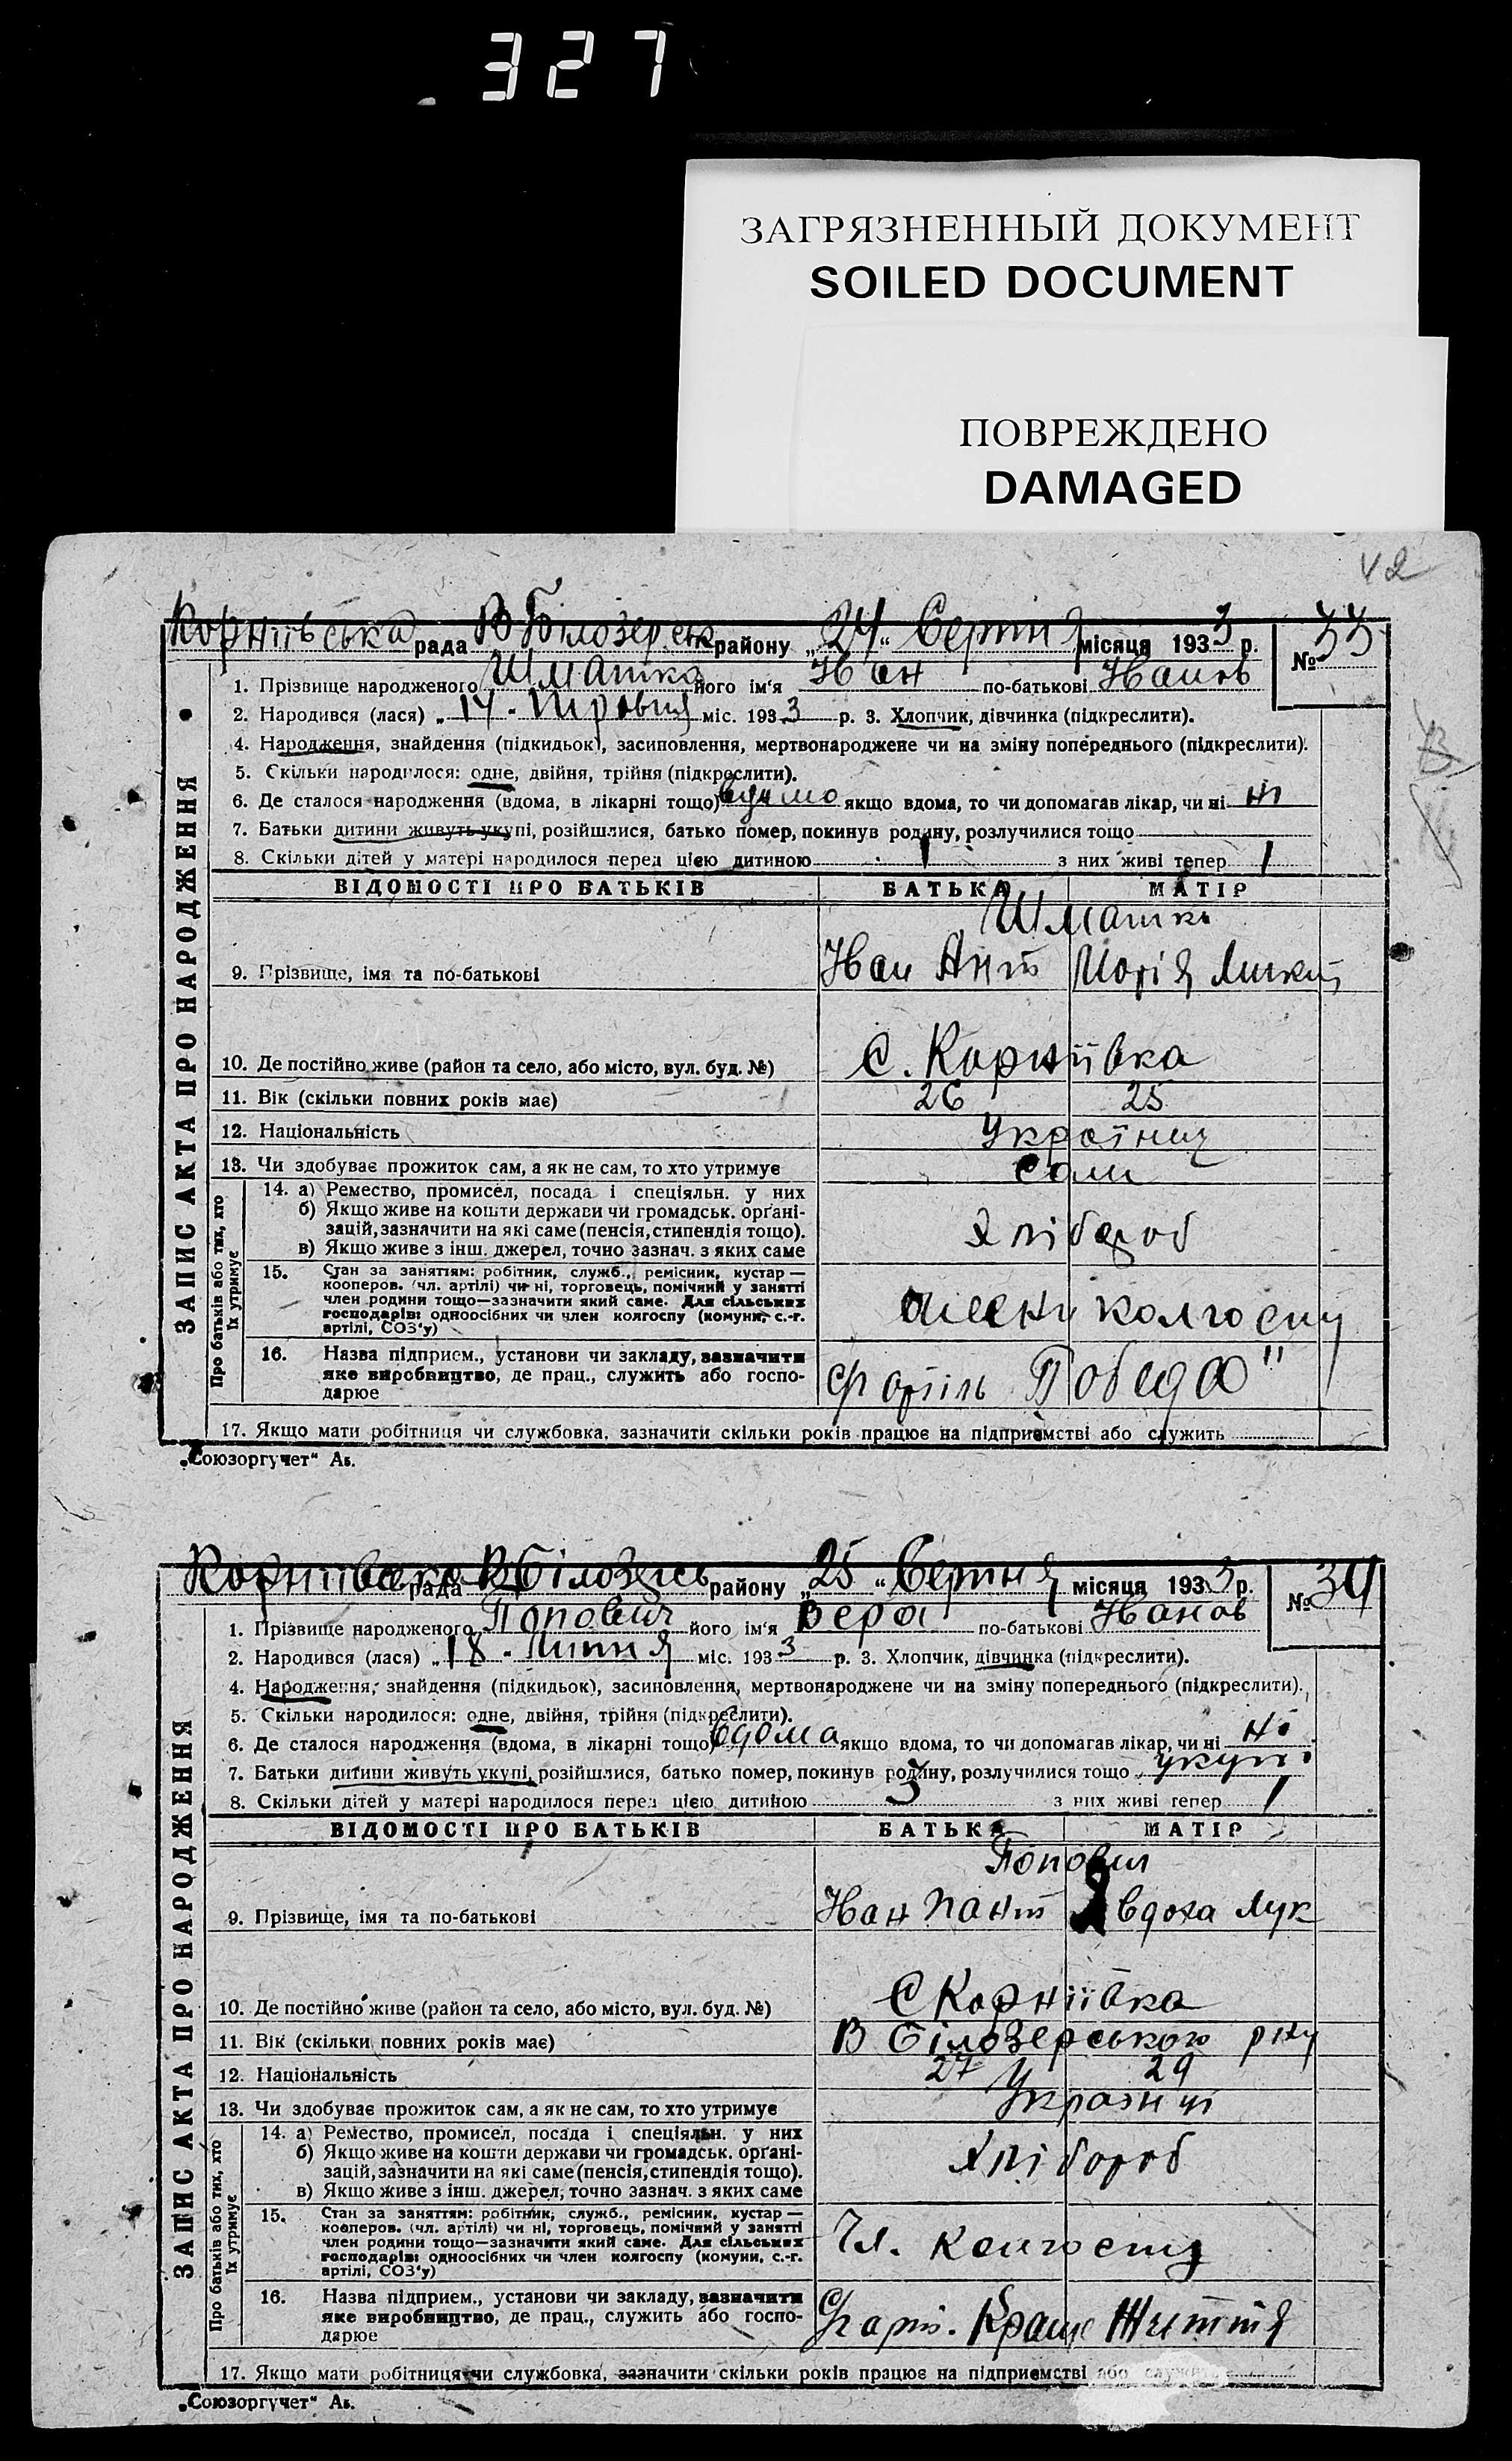 327
ЗАГРЯЗНЕННЫЙ ДОКУМЕНТ
SOILED DOCUMENT
ПОВРЕЖДЕНО
DAMAGED
42
Корніївська рада В Білозерськ району „24“ Серпня місяця 1933 р. № 33
1. Прізвище народженого Шматко його ім‘я Иван по-батькові Иванов
2. Народився (лася) „14 міс. 1933 р. 3. Хлопчик, дівчинка (підкреслити).
4. Народження, знайдення (підкидьок), засиповлення, мертвонароджене чи на зміну попереднього (підкреслити).
5. Скільки народилося: одне, двійня, трійня (підкреслити).
6. Де сталося народження (вдома, в лікарні тощо) якщо вдома, то чи допомагав лікар, чи ні ні
7. Батьки дитини живуть укупі, розійшлися, батько помер, покинув родину, розлучилися тощо
8. Скільки дітей у матері народилося перед цією дитиною 1 з них живі тепер 1
ВІДОМОСТІ ПРО БАТЬКІВ БАТЬКА МАТІР
Шматко
9. Прізвище, імя та по-батькові Иван Ант Марія
10. Де постійно живе (район та село, або місто, вул. буд. №) С. Корніївка
11. Вік (скільки повних років має) 26 25
12. Національність
13. Чи здобуває прожиток сам, а як не сам, то хто утримує сами
14. а) Ремество, промисел, посада і спеціяльн. у них
б) Якщо живе на кошти держави чи громадськ. орґані-
зацій, зазначити на які саме (пенсія, стипендія тощо).
в) Якщо живе з інш. джерел, точно зазнач. з яких саме
Хлібороб
15. Стан за заняттям: робітник, служб., ремісник, кустар —
кооперов. (чл. артілі) чи ні, торговець, помічний у занятті
член родини тощо—зазначити який саме. Для сільських
господарів: одноосібних чи член колгоспу (комуни, с.-г.
артілі, СОЗ‘у)
колгоспу
16. Назва підприєм., установи чи закладу, зазначити
яке виробництво, де прац., служить або госпо-
дарюе
артіль Победа"
17. Якщо мати робітниця чи службовка, зазначити скільки років працює на підприємстві або служить
ЗАПИС АКТА ПРО НАРОДЖЕННЯ
Про батьків або тих, хто
їх утримує
„Союзоргучет“ Аб.
Корніївська рада В Білозерсь району „25“ Серпня місяця 1933 р. № 34
1. Прізвище народженого Попович його ім‘я Вера по-батькові Иванов
2. Народився (лася) „18 - Липня міс. 1933 р. 3. Хлопчик, дівчинка (підкреслити).
4. Народження, знайдення (підкидьок), засиновлення, мертвонароджене чи на зміну попереднього (підкреслити).
5. Скільки народилося: одне, двійня, трійня (підкреслити).
6. Де сталося народження (вдома, в лікарні тощо) вдома якщо вдома, то чи допомагав лікар, чи ні ні
7. Батьки дитини живуть укупі, розійшлися, батько помер, покинув родину, розлучилися тощо укупі
8. Скільки дітей у матері народилося перед цією дитиною 3 з них живі тепер 1
ВІДОМОСТІ ПРО БАТЬКІВ БАТЬКА МАТІР
Попович
9. Прізвище, імя та по-батькові Иван Пант Явдоха Лук
10. Де постійно живе (район та село, або місто, вул. буд. №) С Корніївка
11. Вік (скільки повних років має) В Білозерського р-ну
12. Національність 27 29
13. Чи здобуває прожиток сам, а як не сам, то хто утримує Українці
14. а) Ремество, промисел, посада і спеціяльн. у них
б) Якщо живе на кошти держави чи громадськ. орґані-
зацій, зазначити на які саме (пенсія, стипендія тощо).
в) Якщо живе з інш. джерел, точно зазнач. з яких саме
Хлібороб
15. Стан за заняттям: робітник, служб., ремісник, кустар —
кооперов. (чл. артілі) чи ні, торговець, помічний у занятті
член родини тощо—зазначити який саме. Для сільських
господарів: одноосібних чи член колгоспу (комуни, с.-г.
артілі, СОЗ‘у)
Чл. колгоспу
16. Назва підприєм., установи чи закладу, зазначити
яке виробництво, де прац., служить або госпо-
дарюе
Життя
17. Якщо мати робітниця чи службовка, зазначити скільки років працює на підприємстві або служить
ЗАПИС АКТА ПРО НАРОДЖЕННЯ
Про батьків або тих, хто
їх утримує
„Союзоргучет“ Аб.